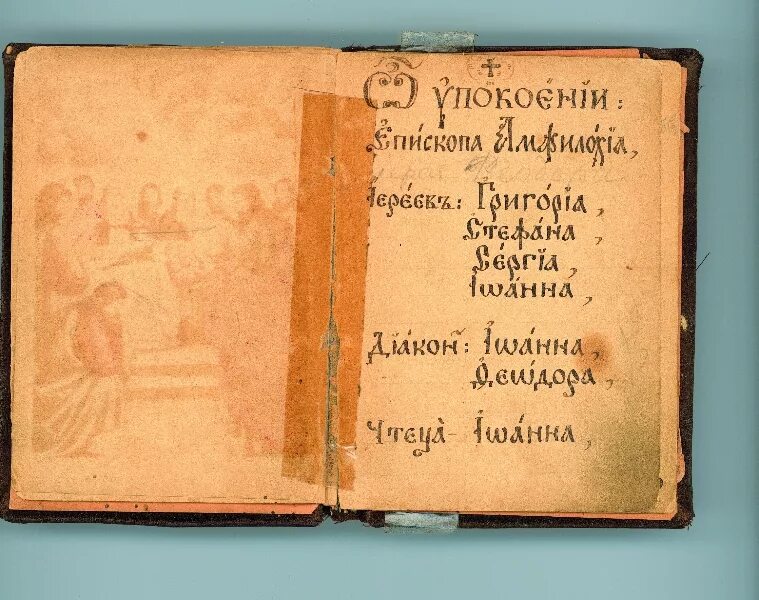 Ѿ ᲂу҆покое́нїи :
Е҆пи́скопа А҆мфило́хїа ,
І҆ере́євъ : Григо́рїа ,
Стефа́на ,
Се́ргїа ,
І҆ѡа́нна ,
Дїа́кон : І҆ѡа́нна ,
Ѳеѡ́дора ,
Чтеца̀ - І҆ѡа́нна ,